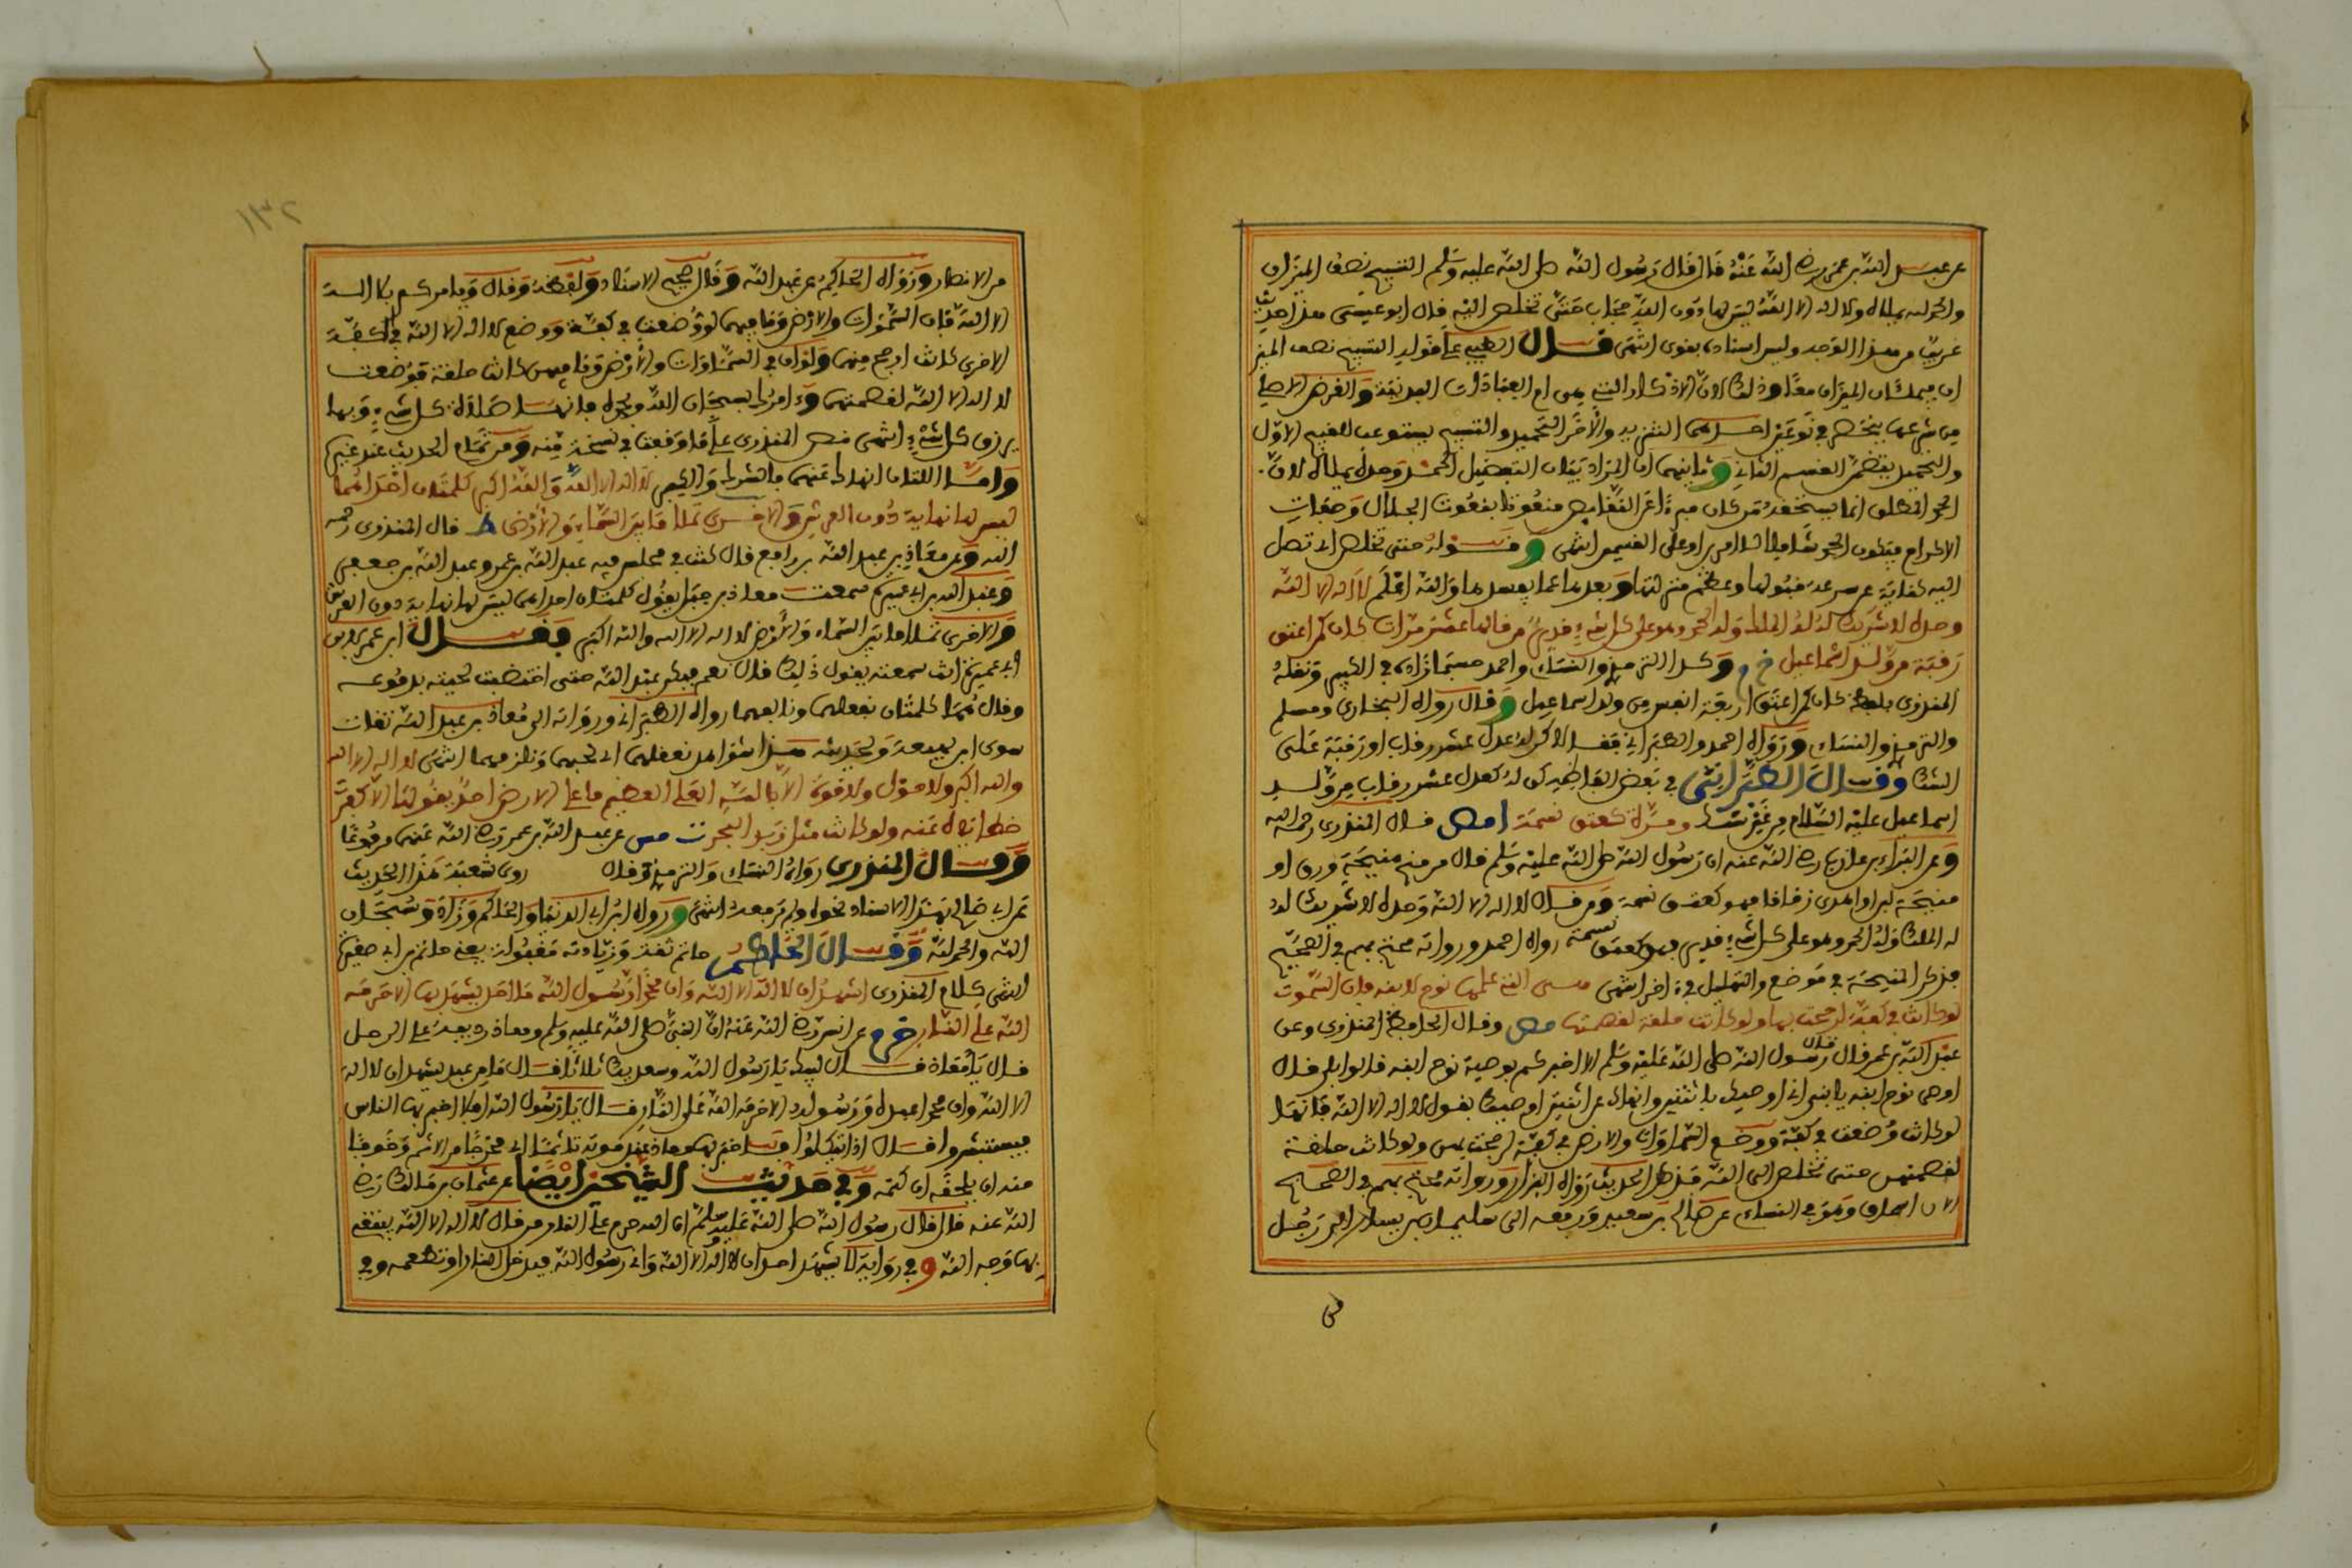 عن عبد الله بن عمر رضي الله عنه قال قال رسول الله صلى الله عليه وسلم التسبيح نصف الميزان
والحمد لله يملاه ولا اله الا الله ليس لها دون الله حجاب حتى تخلص اليه قال ابو عيسى هذا حديث
غريب من هذا الوجه وليس اسناده بقوي انتهى قال الطيبي على قوله التسبيح نصف الميز
ان فيملئان الميزان معا وذلك لان الاذكار التي هي ام العبادات البدنية والغرض الاصلي
من شرعها ينحصر في نوعين احدهما التنزيه والاخر التحميد والتسبيح يستوعب القسم الاول
والتحميد يتضمن القسم الثاني وثانيهما ان المراد بيان التفضيل الحمد وحده يملاه لان
الحمد المطلق انما يستحقه من كان مبرءا عن النقائص منعوتا بنعوت الجلال وصفات
الاكرام فيكون الحمد شاملا للامرين واعلى القسمين انتهى وقوله حتى تخلص اي تصل
اليه كناية عن سرعة قبولها وعظم منزلتها وبعدها عما يفسدها والله اعلم لا اله الا الله
وحده لا شريك له له الملك وله الحمد وهو على كل شيء قدير من قالها عشر مرات كان كمن اعتق
رقبة من ولد اسماعيل خ م وكذا الترمذي والنساء واحمد حسبما زاده في الكبير ونقله
المنذري بلفظ كان كمن اعتق اربعة انفس من ولد اسماعيل وقال رواه البخاري ومسلم
والترمذي والنساء ورواه احمد والطبراني فقالا كن له عدل عشر رقاب او رقبة على
الشك وقال الطبراني في بعض الفاظه كن له كعدل عشر رقاب من ولد
اسماعيل عليه السلام من غير شك ومرة كعتق نسمة ا مص قال المنذري رحمه الله
وعن البراء بن عازب رضي الله عنه ان رسول الله صلى الله عليه وسلم قال من منح منيحة ورق او
منيحة لبن او اهدى زقاقا فهو كعتق نسمة ومن قال لا اله الا الله وحده لا شريك له
له الملك وله الحمد وهو على كل شيء قدير فهو كعتق نسمة رواه احمد ورواته محتج بهم في الصحيح
فذكر المنيحة في موضع والتهليل في اخر انتهى مس هي التي علمها نوح لابنه فان السموت
لو كانت في كفة لرجحت بها ولو كانت حلقة لفصمتها مص وقال الحافظ المنذري وعن
عبد الله بن عمر قال قال رسول الله صلى الله عليه وسلم الا اخبركم بوصية نوح ابنه قالوا بلى قال
اوصى نوح ابنه يا ابني اني اوصيك باثنتين وانهاك عن اثنتين اوصيك بقول لا اله الا الله فانها
لو كانت وضعت في كفة ووضع السماوات والارض في كفة لرجحت بهن ولو كانت حلقة
لفصمتهن حتى تخلص الى الله فذكر الحديث رواه البزار ورواته محتج بهم في الصحاح
الا ابن اسحاق وهو في النساء عن صالح بن سعيد ورفعه الى سليمان بن يسار الى رجل
من
١٣٢
من الانصار ورواه الحاكم عن عبد الله وقال صحيح الاسناد ولفظه وقال وءامركم بلا اله
الا الله فان السموات والارض وما فيهما لو وضعت في كفة ووضع لا اله الا الله في الكفة
الاخرى كانت ارجح منهما ولو ان السماوات والارض وما فيهن كانت حلقة فوضعت
لا اله الا الله لفصمتهما وءامركما بسبحان الله وبحمده فانها صلاة كل شيء وبها
يرزق كل شيء انتهى نص المنذري على ما وقعت في نسخة منه ومن تمام الحديث عند غيره
واما اللتان انهاك عنهما فالشرك والكبر لا اله الا الله والله اكبر كلمتان احداهما
ليس لها نهاية دون العرش والاخرى تملا ما بين السماء والارض ط قال المنذري رحمه
الله وعن معاذ بن عبد الله بن رافع قال كنت في مجلس فيه عبد الله بن عمر وعبد الله بن جعفر
وعبد الله بن ابي عميرة سمعت معاذ بن جبل يقول كلمتان احداهما ليس لها نهاية دون العرش
والاخرى تملا ما بين السماء والارض لا اله الا الله والله اكبر فقال ابن عمر لابن
ابي عميرة انت سمعته يقول ذلك قال نعم فبكى عبد الله حتى اختضبت لحيته بدموعه
وقال هما كلمتان نعلقهما ونالفهما رواه الطبراني ورواته الى معاذ بن عبد الله ثقات
سوى ابن لهيعة ولحديثه هذا شواهد نعلقهما اي نحبهما ونلزمهما انتهى لا اله الا الله
والله اكبر ولا حول ولا قوة الا بالله العلي العظيم ما على الارض احد يقولها الا كفرت
خطاياه عنه ولو كانت مثل زبد البحر ت مس عن عبد الله بن عمر رضي الله عنهما مرفوعا
وقال المنذري رواه النساء والترمذي وقال روى شعبة هذا الحديث
عن ابي صالح بهذا الاسناد نحوه ولم يرفعه انتهى ورواه ابن ابي الدنيا والحاكم وزاد وسبحان
الله والحمد لله وقال الحاكم حاتم ثقة وزيادته مقبولة يعني حاتم بن ابي صغيرة
انتهى كلام المنذري اشهد ان لا اله الا الله وان محمدا رسول الله ما احد يشهد بها الا حرمه
الله على النار خ م عن انس رضي الله عنه ان النبي صلى الله عليه وسلم ومعاذ رديفه على الرحل
قال يا معاذ قال لبيك يا رسول الله وسعديك ثلاثا قال ما من عبد يشهد ان لا اله
الا الله وان محمدا عبده ورسوله الا حرمه الله على النار قال يا رسول الله افلا اخبر بها الناس
فيستبشروا قال اذا يتكلوا فاخبر بها معاذ عند موته تاثما اي تحرجا من الاثم وخوفا
منه ان يلحقه ان كتمه وفي حديث الشيخين ايضا عن عتبان بن مالك رضي
الله عنه قال قال رسول الله صلى الله عليه وسلم ان الله حرم على النار من قال لا اله الا الله يبتغي
بها وجه الله وفي رواية لا يشهد احد ان لا اله الا الله واني رسول الله فيدخل النار او تطعمه وفي